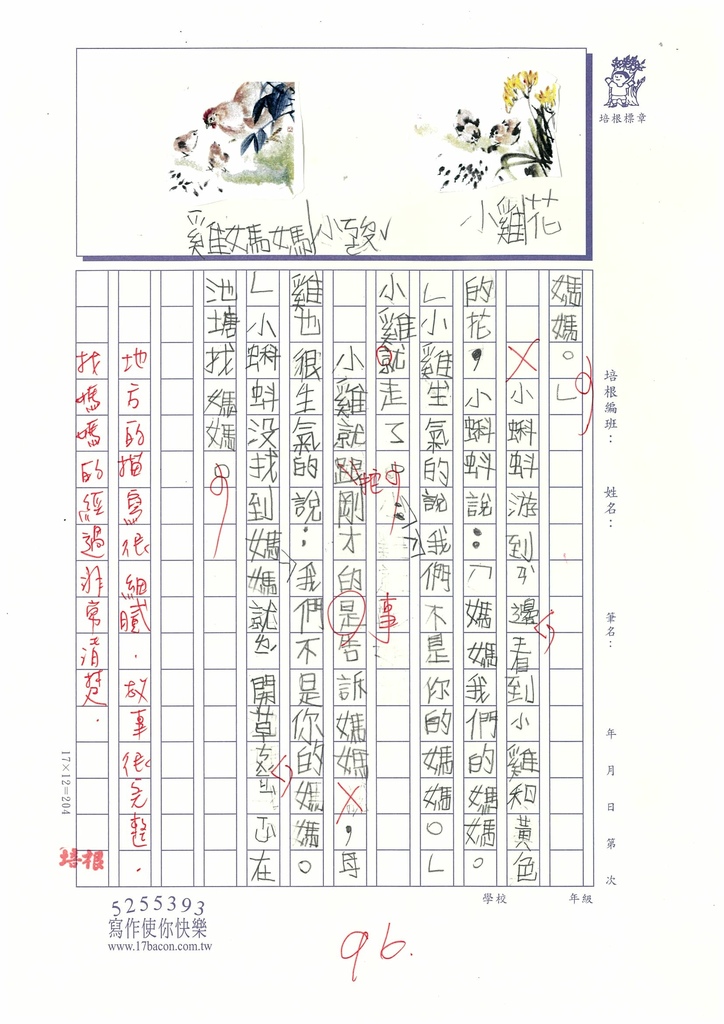 培根標章
小雞花
雞媽媽小
培根編班：
姓名：
筆名：
年 月 日 第 次
學校
年級
媽媽。」
小蝌蚪游到ㄢ邊看到小雞和黃色
的花，小蝌蚪說：「媽媽我們的媽媽。
」小雞生氣的說：「我們不是你的媽媽。」
小雞就走了。
小雞就跟剛才的是告訴媽媽，母
事
雞也很生氣的說：「我們不是你的媽媽。
」小蝌蚪沒找到媽媽就 開草 正在
池塘找媽媽。
地方的描寫很細膩．故事很完整．
找媽媽的經過非常清楚．
培根
17×12=204
5255393
寫作使你快樂
www.17bacon.com.tw
96.